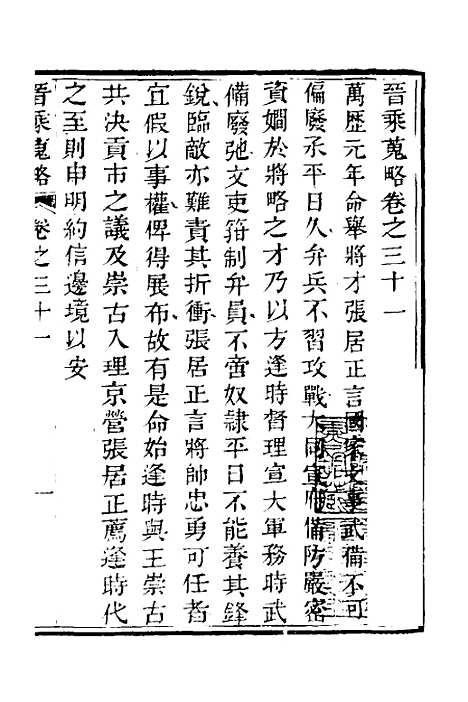 晉乘蒐略卷之三十一
萬歷元年命舉將才張居正言國家文事武備不可
偏廢承平日久弁兵不習攻戰大同宣府備防嚴密
資嫺於將略之才乃以方逢時督理宣大軍務時武
備廢弛文吏箝制弁員不啻奴隸平日不能養其鋒
銳臨敵亦難責其折衝張居正言將帥忠勇可任者
宜假以事權俾得展布故有是命始逢時與王崇古
共決貢市之議及崇古入理京營張居正薦逢時代
之至則申明約信邊境以安
晉乘蒐略 卷之三十一 一